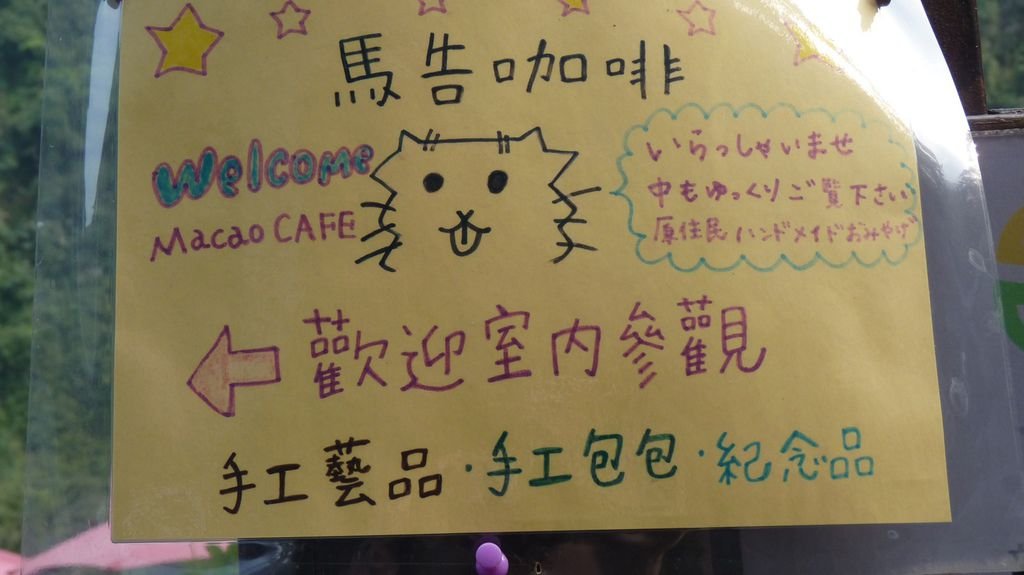 馬告咖啡
Welcome
Macao CAFE
いらっしゃいませ
中もゆっくりご覧下さい
原住民 ハンドメイドおみやげ
歡迎室内參觀
手工藝品・手工包包・紀念品